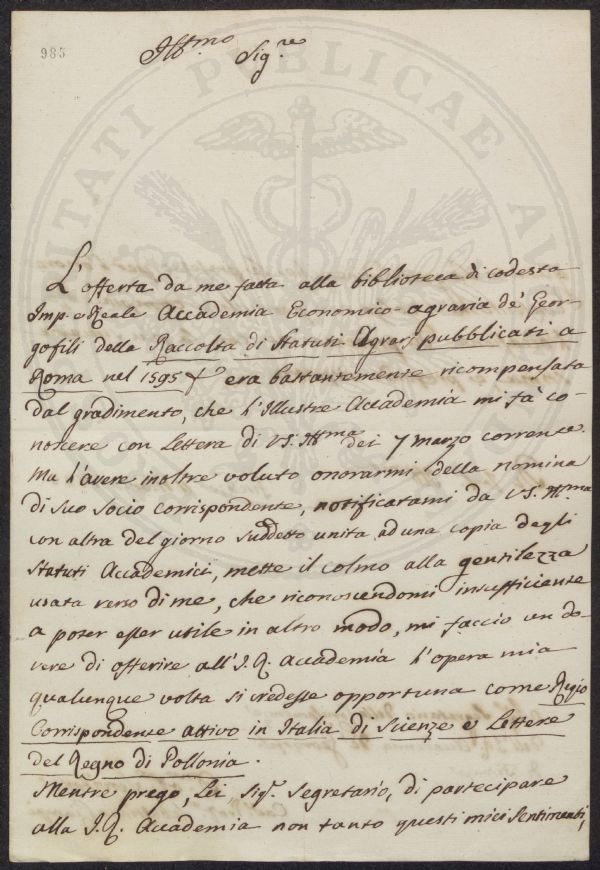 983
Ill.mo
Sig.re
L'offerta da me fatta alla biblioteca di codesta
Imp. e Reale Accademia Economico-agraria de' Geor-
gofili della Raccolta di Statuti Agrarj pubblicati a
Roma nel 1595 era bastantemente ricompensata
dal gradimento, che l'Illustre Accademia mi fà co-
noscere con Lettera di VS. Ill.ma dei 7 marzo corrente.
Ma l'avere inoltre voluto onorarmi della nomina
di suo socio corrispondente, notificatami da VS. Ill.ma
con altra del giorno suddetto unita ad una copia degli
Statuti Accademici, mette il colmo alla gentilezza
usata verso di me, che riconoscendomi insufficiente
a poter esser utile in altro modo, mi faccio un do-
vere di offerire all'I. R. Accademia l'opera mia
qualunque volta si credesse opportuna come Regio
Corrispondente attivo in Italia di Scienze e Lettere
del Regno di Pollonia.
Mentre prego, Lei Sig.r Segretario, di partecipare
alla I. R. Accademia non tanto questi miei sentimenti,
PUBLICAE